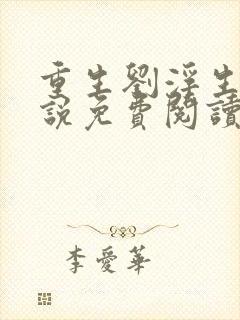 重生劉淫生
說免費閱讀
李愛華